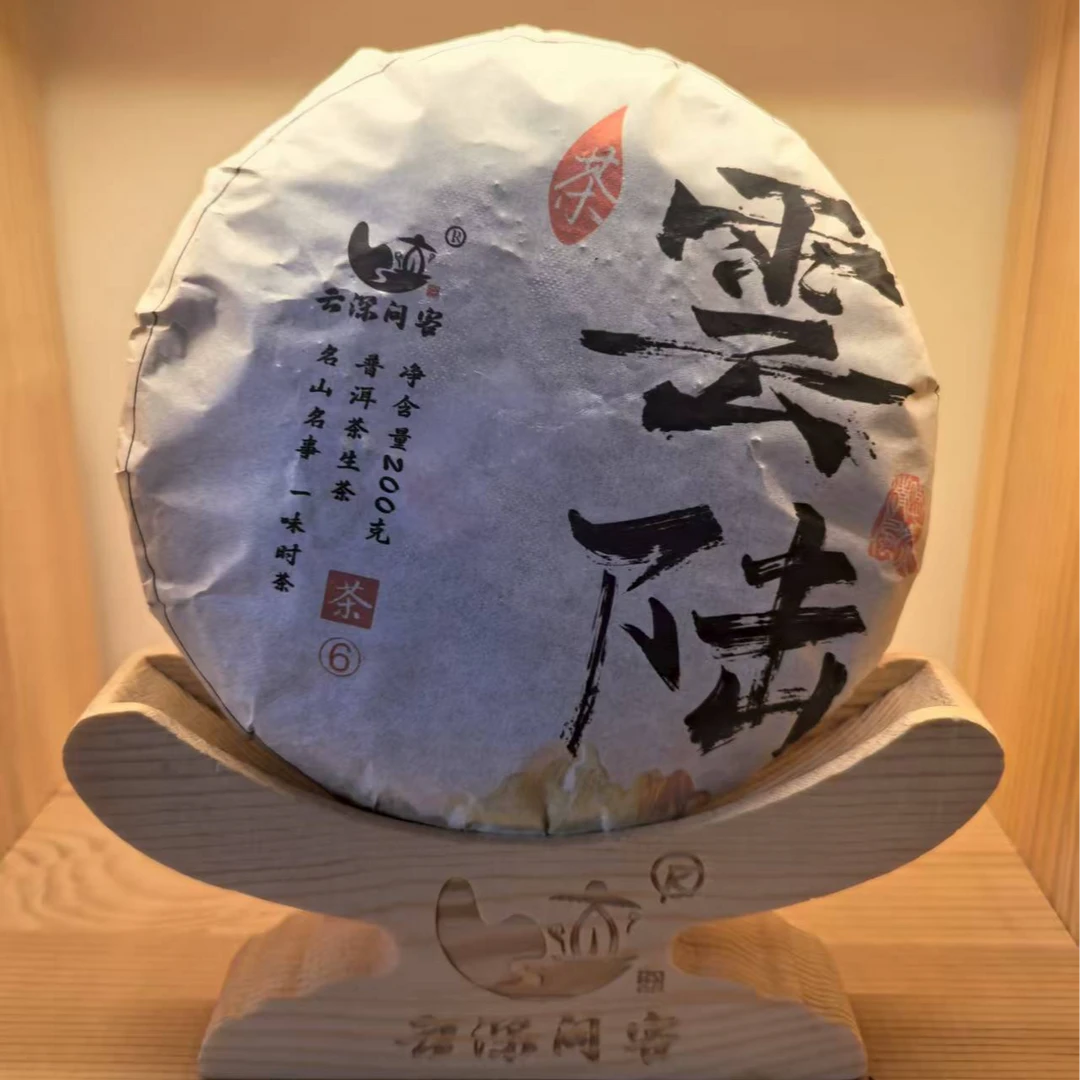 茶
雲陆
®
云深问客
净含量200克
普洱茶生茶
名山名事 一味时茶
茶
⑥
®
云深问客